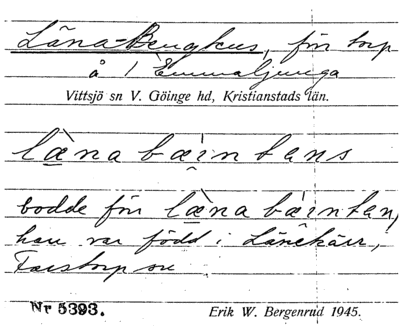 Läna-Bengkus, för torp
å / Emmaljunga
Vittsjö sn V. Göinge hd, Kristianstads län.
læna bæin tans
bodde för læna bæintan,
han var född i Länekärr,
Farstorp sn
Nr 5393. Erik W. Bergenrud 1945.